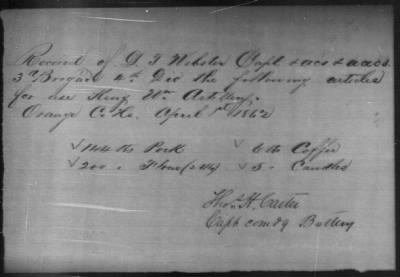 Received of D. T. Webster Capt & acs & aacs
3d Brigade 4th Div the following articles
for use King Wm Artillery.
Orange C. Ho. April 1st 1862
√ 144 lbs Pork √ 6 lbs Coffee
√ 200 " Flour √ 3 " Candles
Thos. H. Carter
Capt comdg Battery